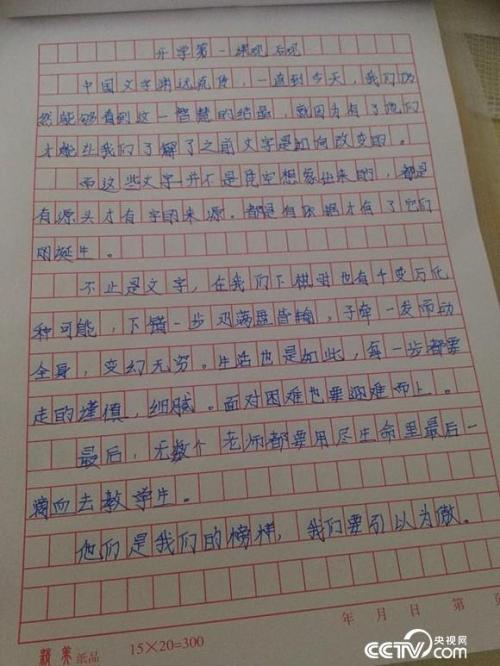 开学第一课观后观
中国文字渊远流传，一直到今天，我们仍
然能够看到这一智慧的结晶，就因为有了他们
才能让我们了解了之前文字是如何改变的。
而这些文字并不是凭空想象出来的，都是
有源头才有字的来源。都是有依据才有了它们
的诞生。
不止是文字，在我们下棋时也有千变万化
种可能，下错一步则满盘皆输，子牵一发而动
全身，变幻无穷。生活也是如此，每一步都要
走的谨慎，细腻。面对困难也要迎难而上。
最后，无数个老师都要用尽生命里最后一
滴血去教学生。
他们是我们的榜样，我们要引以为傲。
年 月 日 第 页
纸品 15×20=300
CCTV 央视网 .com